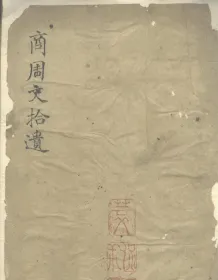 商周文拾遺